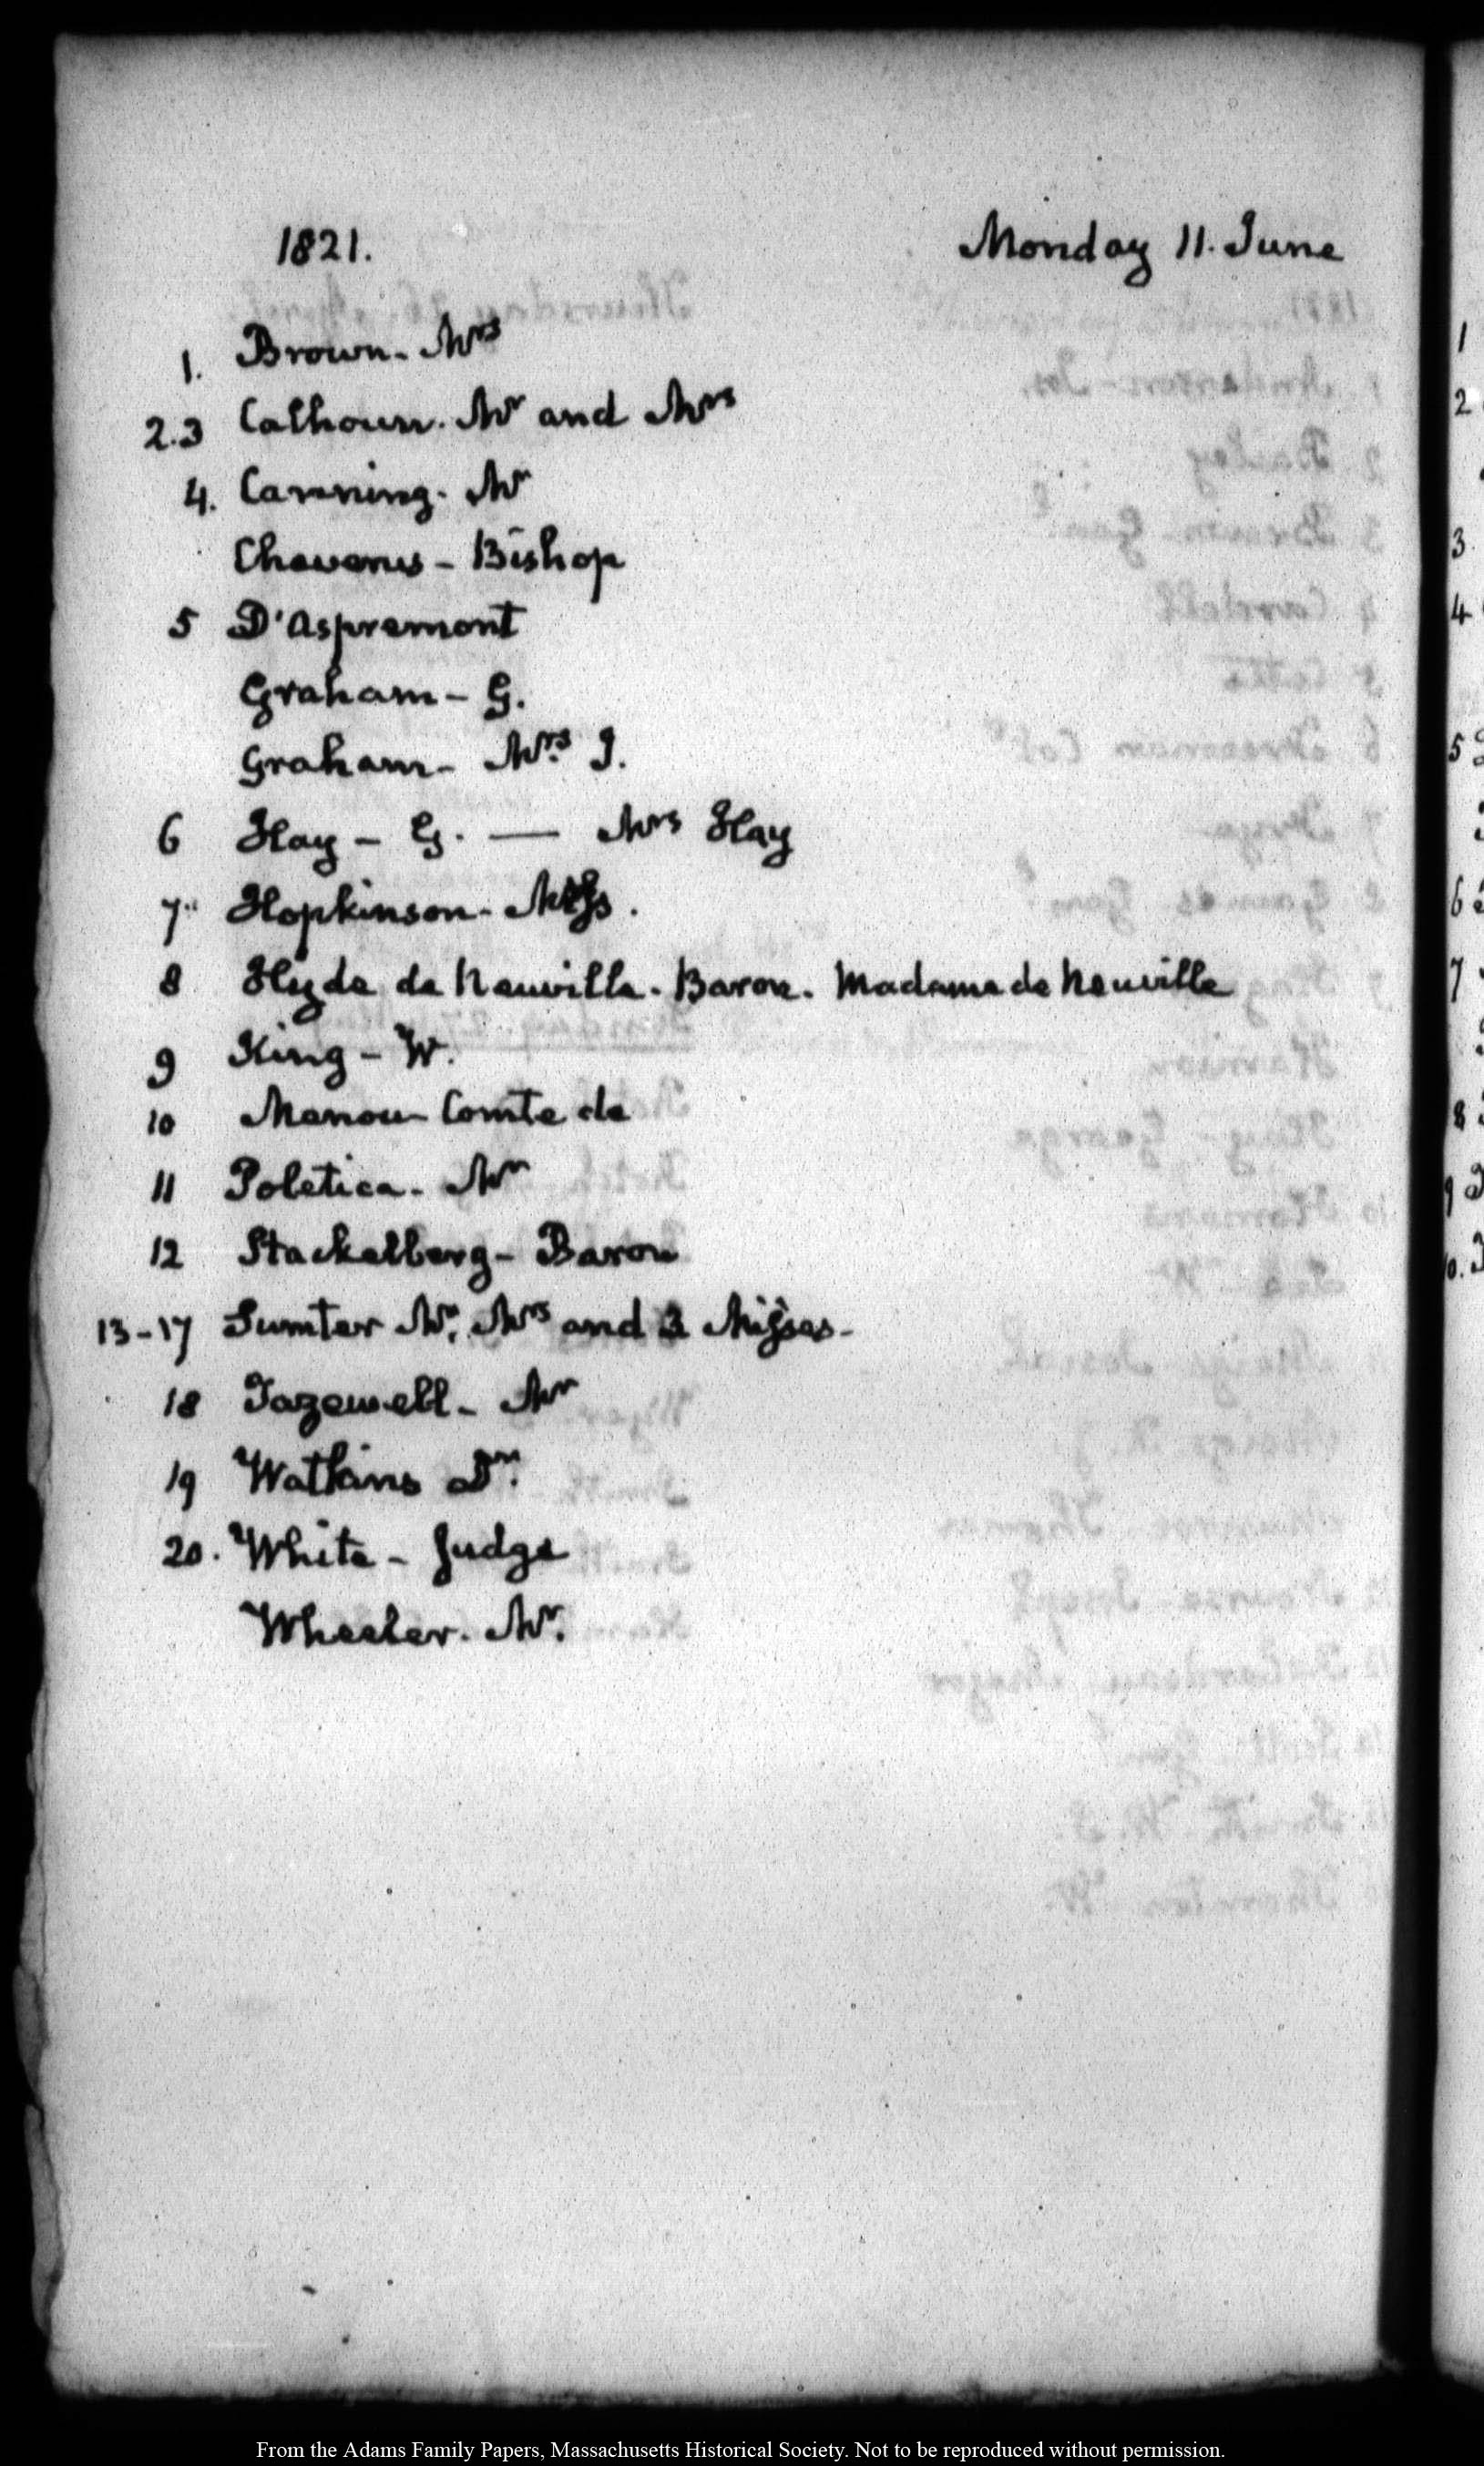 1821. Monday 11. June
1. Brown. Mrs
2.3 Calhoun. Mr and Mrs
4. Canning. Mr
Cheverus - Bishop
5 D'Aspremont
Graham - G.
Graham - Mrs. J.
6 Hay - G. — Mrs Hay
7 Hopkinson.
8 Hyde de Neuville. Baron. Madame de Neuville
9 King - W.
10 Menou Comte de
11 Poletica. Mr
12 Stackelberg - Baron
13-17 Sumter Mr. Mrs and 3 Misses -
18 Tazewell - Mr
19 Watkins Dr.
20. White - Judge
Wheeler. Mr.
1
2
3.
4
5
6
7
8
9
10.
From the Adams Family Papers, Massachusetts Historical Society. Not to be reproduced without permission.